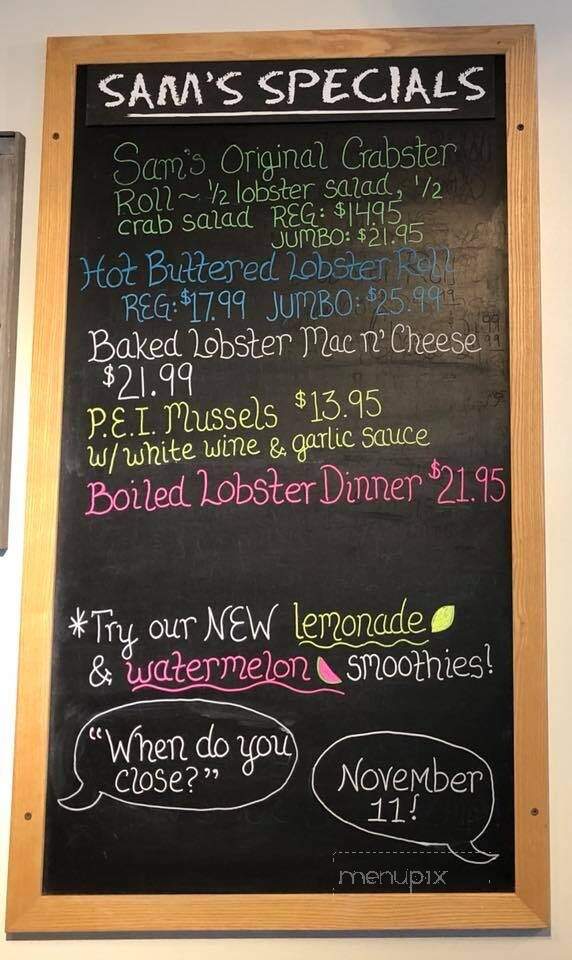 SAM'S SPECIALS
Sam's Original Crabster
Roll ~ 1/2 lobster salad, 1/2
crab salad REG: $14.95
JUMBO: $21.95
Hot Buttered Lobster Roll
REG: $17.99 JUMBO: $25.99
Baked Lobster Mac n' Cheese
$21.99
P.E.I. Mussels $13.95
w/ white wine & garlic sauce
Boiled Lobster Dinner $21.95
*Try our NEW lemonade
& watermelon smoothies!
"When do you
close?"
November
11!
menupix